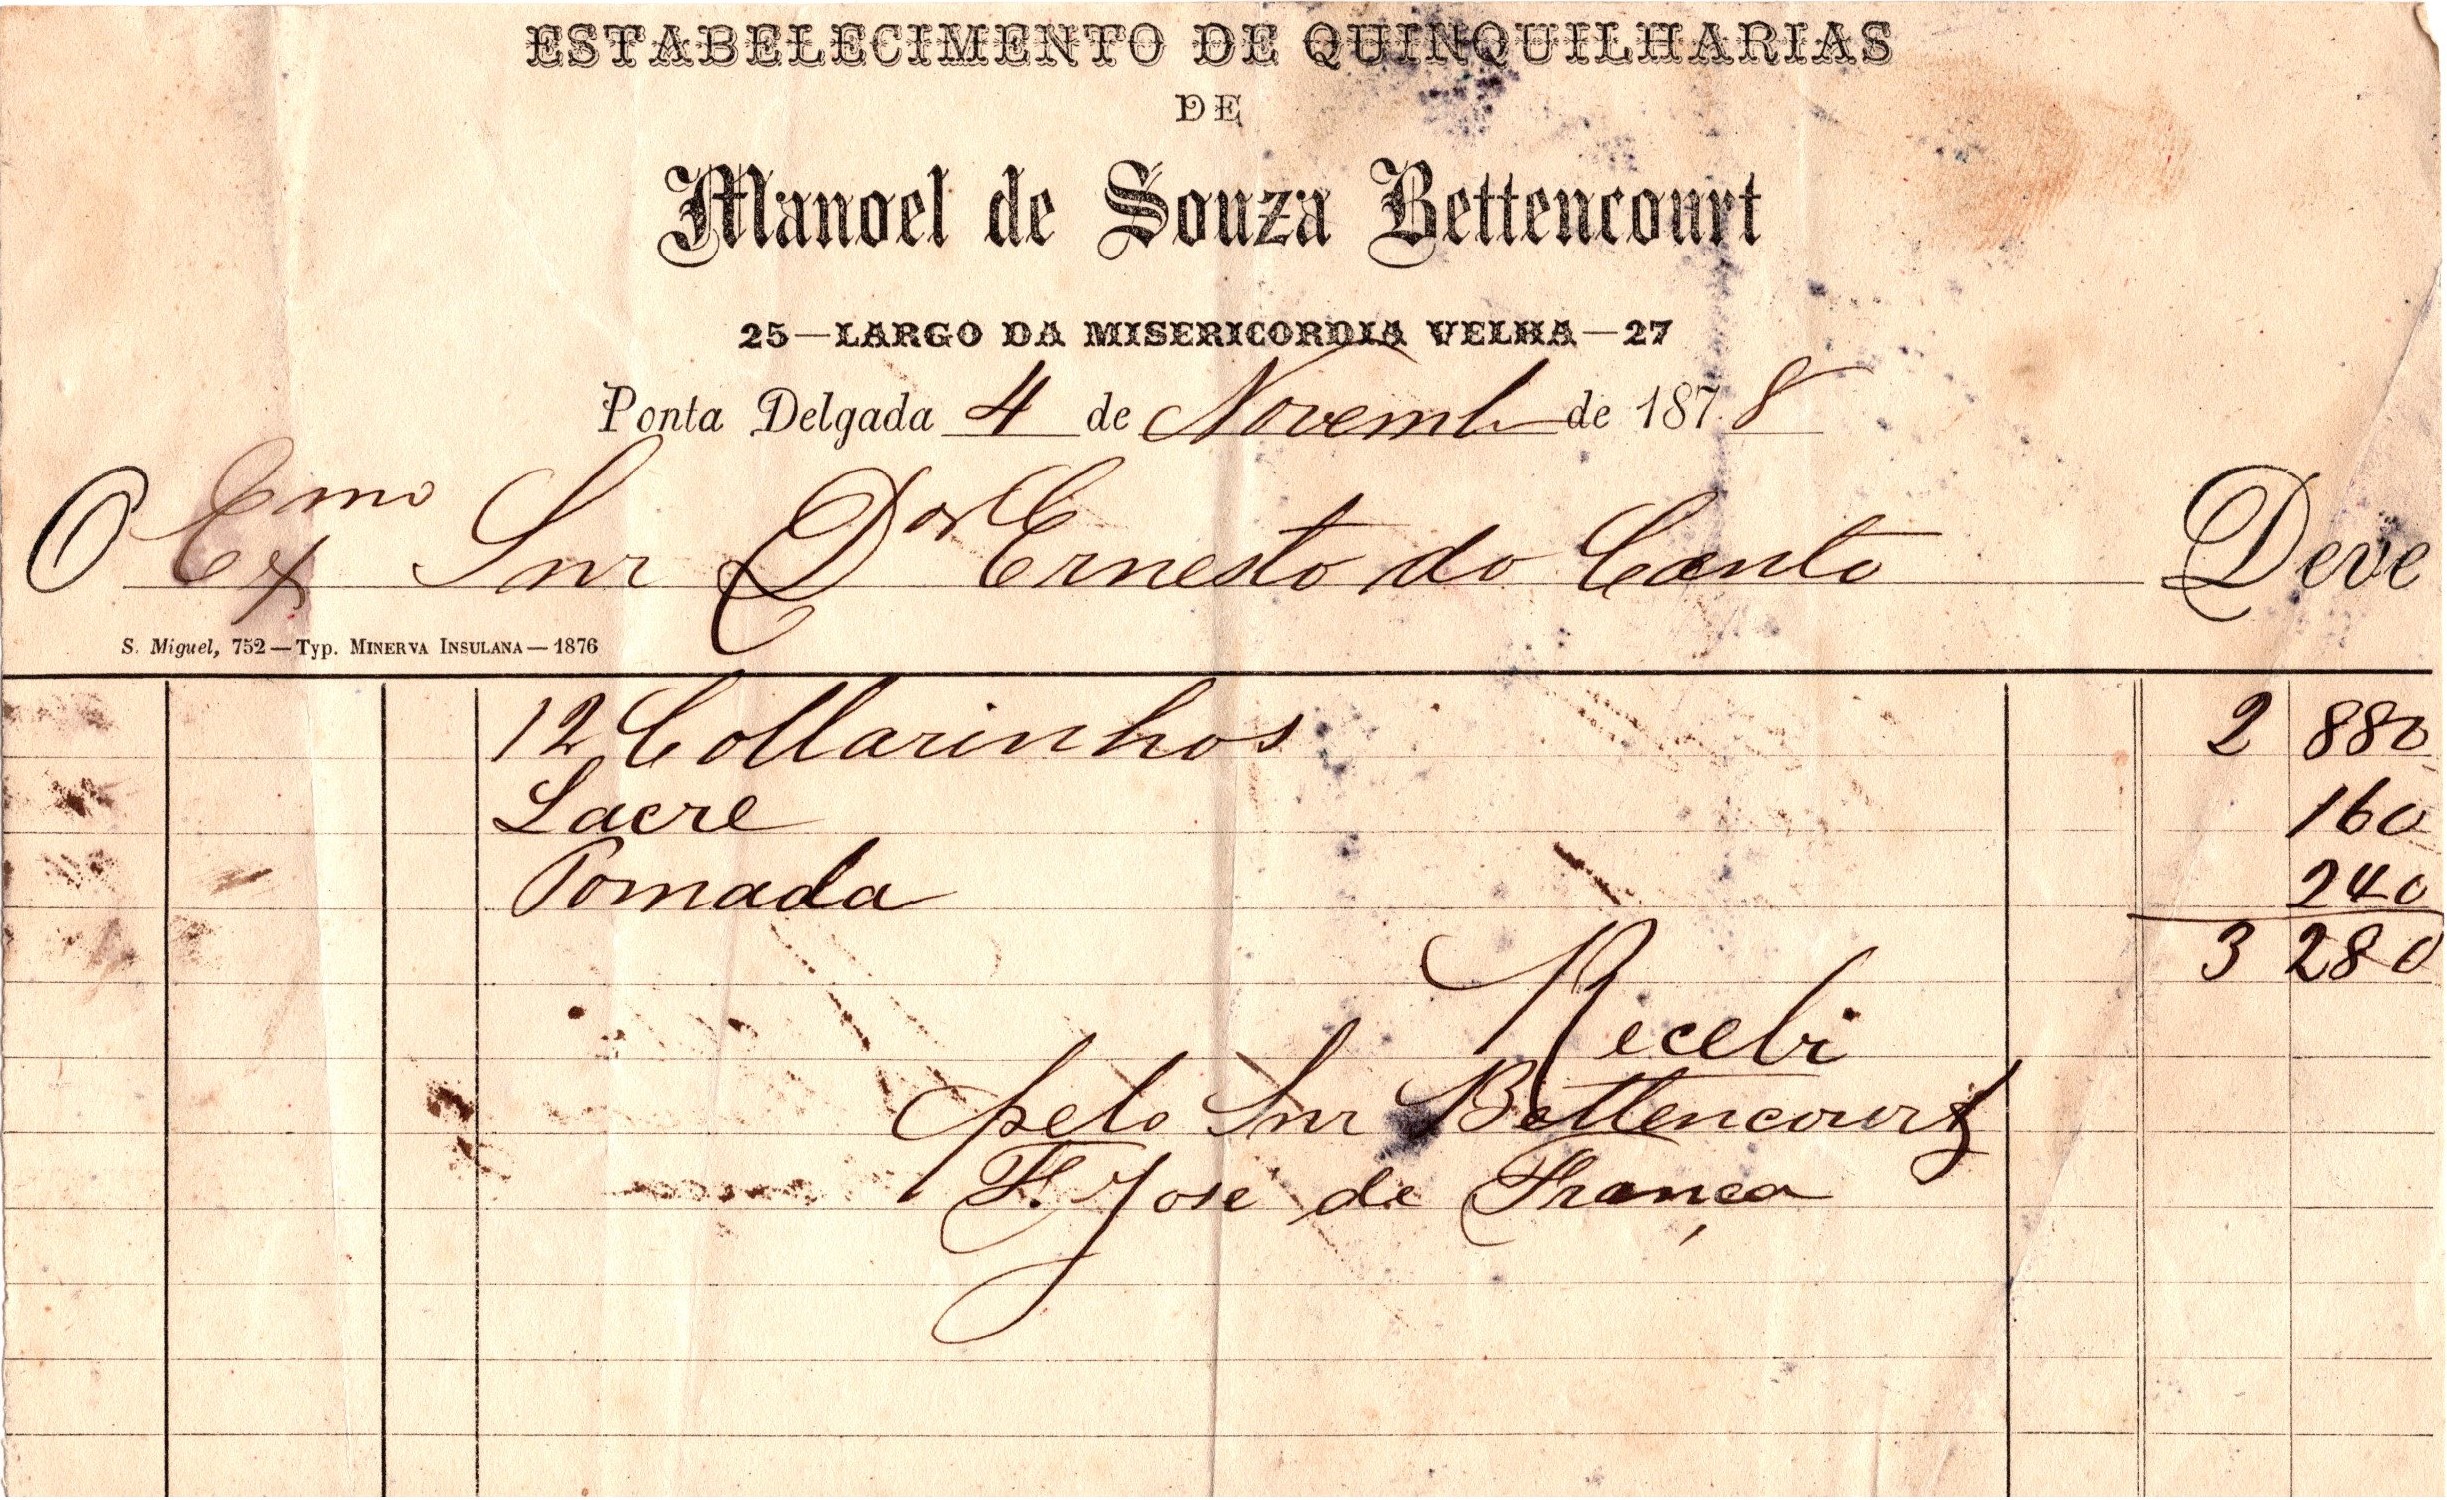 ESTABELECIMENTO DE QUINQUILHARIAS
DE
Manoel de Souza Bettencourt
25—LARGO DA MISERICORDIA VELHA—27
Ponta Delgada 4 de Novemb de 1878
O Exmo Snr Dor Ernesto do Canto Deve
S. Miguel, 752—Typ. MINERVA INSULANA—1876
12 Collarinhos 2 880
Lacre 160
Pomada 240
3 280
Recebi
pelo Snr Bettencourt
F. Jose de França